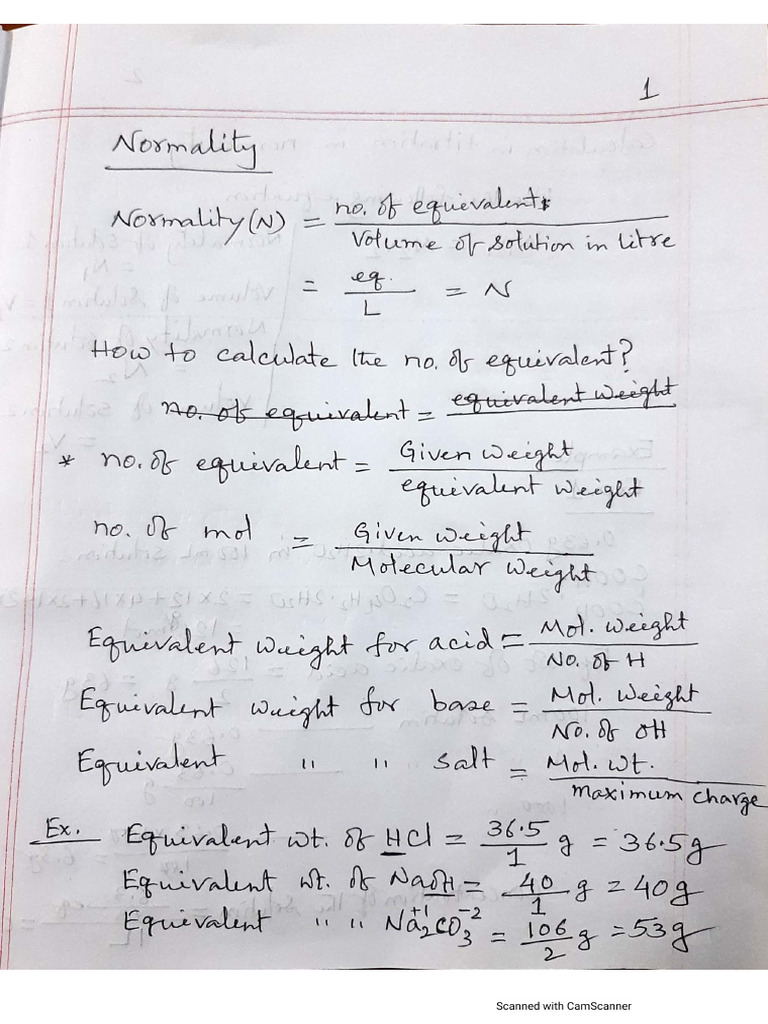 1
Normality
Normality(N) = no. of equivalent* / Volume of solution in litre
= eq. / L = N
How to calculate the no. of equivalent?
no. of equivalent = equivalent weight
* no. of equivalent = Given weight / equivalent weight
no. of mol = Given weight / Molecular weight
Equivalent weight for acid = Mol. weight / No. of H
Equivalent weight for base = Mol. weight / No. of OH
Equivalent " " salt = Mol. wt. / maximum charge
Ex. Equivalent wt. of HCl = 36.5/1 g = 36.5g
Equivalent wt. of NaOH = 40/1 g = 40g
Equivalent " " Na₂⁺¹CO₃⁻² = 106/2 g = 53g
Scanned with CamScanner